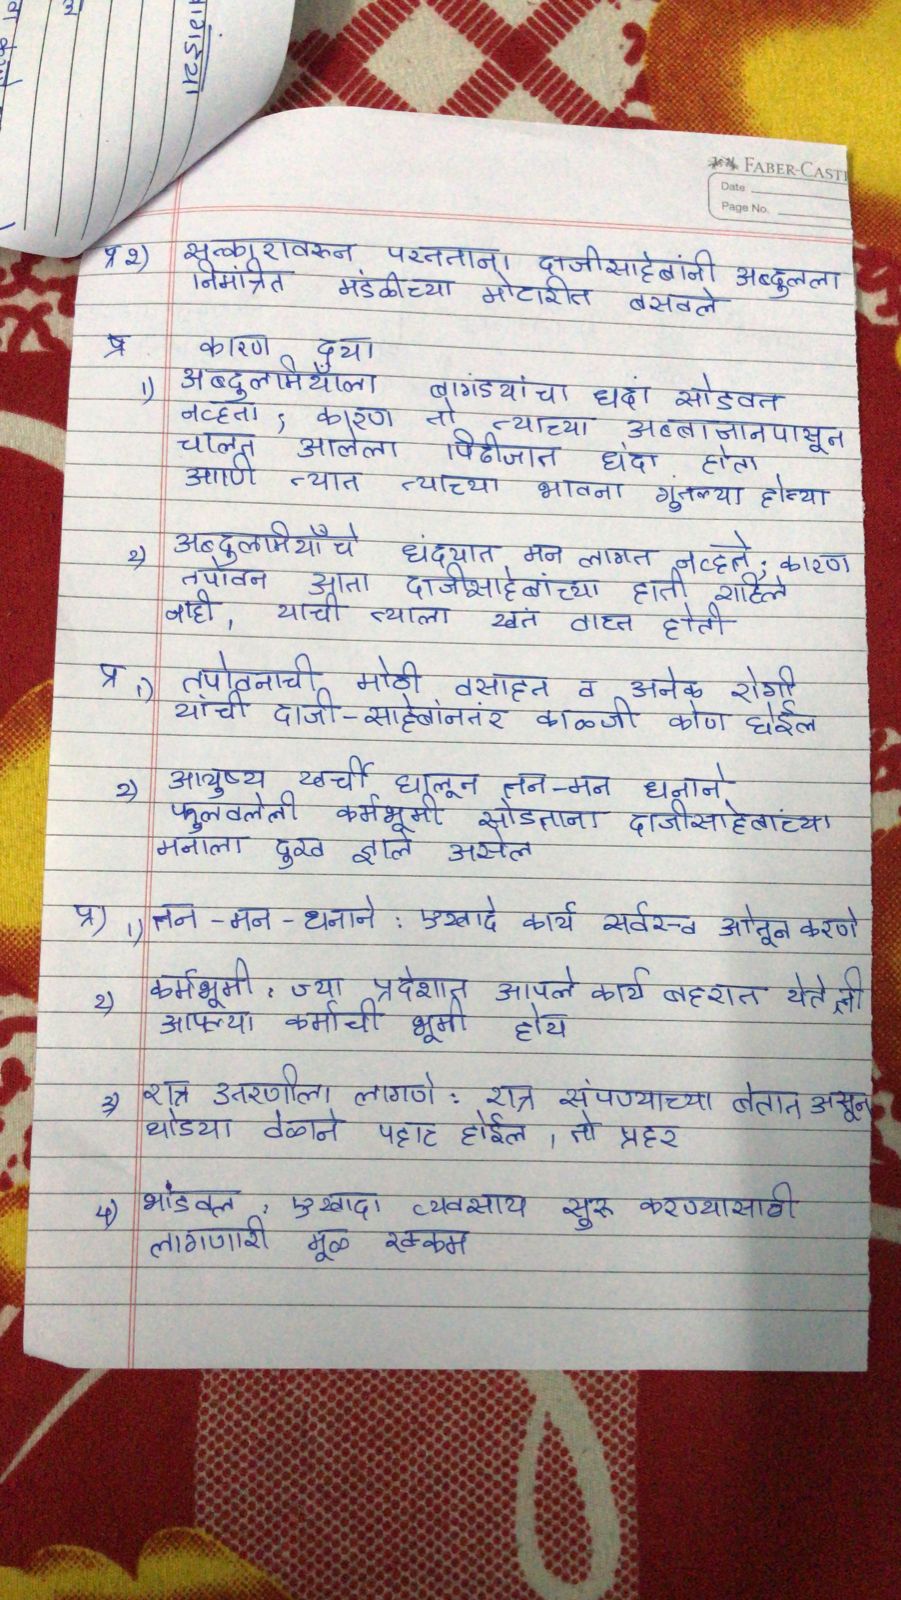 FABER-CASTE
Date
Page No.
प्र २) सत्कारावरून परतताना दाजीसाहेबांनी अब्दुलला
निमंत्रित मंडळीच्या मोटारीत बसवले
प्र कारण द्या
१) अब्दुलमियाँला बागंड्यांचा धदां सोडवत
नव्हता ; कारण तो त्याच्या अब्बाजानपासून
चालत आलेला पिढीजात धंदा होता
आणि त्यात त्याच्या भावना गुंतल्या होत्या
२) अब्दुलमियाँचे धंदयात मन लागत नव्हते ; कारण
तपोवन आता दाजीसाहेबांच्या हाती राहिले
नाही , याची त्याला खंत वाटत होती
प्र १) तपोवनाची मोठी वसाहत व अनेक रोगी
यांची दाजी-साहेबांनतंर काळजी कोण घेईल
२) आयुष्य खर्ची घालून तन-मन धनाने
फुलवलेली कर्मभूमी सोडताना दाजीसाहेबांच्या
मनाला दुख झाले असेल
प्र) १) तन-मन-धनाने : एखादे कार्य सर्वस्व ओतून करणे
२) कर्मभूमी : ज्या प्रदेशात आपले कार्य बहरात येते ती
आपल्या कर्माची भूमी होय
३) रात्र उतरणीला लागणे : रात्र संपण्याच्या बेतात असून
थोडया वेळाने पहाट होईल , तो प्रहर
४) भांडवल : एखादा व्यवसाय सुरू करण्यासाठी
लागणारी मूळ रक्कम